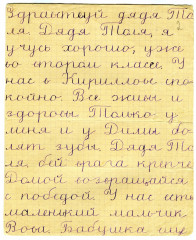 Здравствуй дядя То
ля. Дядя Толя, я
учусь хорошо, уже
во втором классе. У
нас в Кириллове спо
койно. Все живы и
здоровы Только у
меня и у Димы бо
лят зубы. Дядя То
ля бей врага крепче
Домой возвращайся
с победой. У нас есть
маленький мальчик
Вова. Бабушка